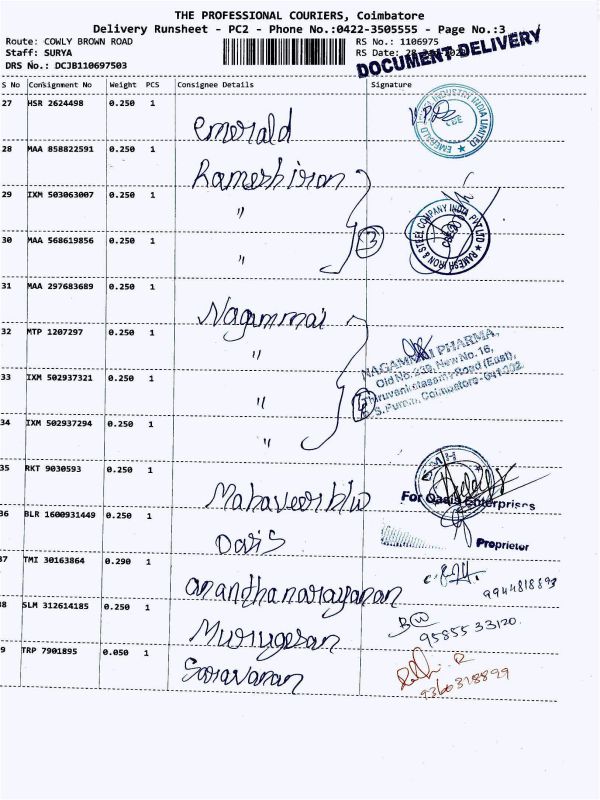 THE PROFESSIONAL COURIERS, Coimbatore
Delivery Runsheet - PC2 - Phone No.:0422-3505555 - Page No.:3
Route: COWLY BROWN ROAD
RS No.: 1106975
Staff: SURYA
RS Date: 28
DRS No.: DCJB110697503
DOCUMENT DELIVERY
S No Consignment No Weight PCS Consignee Details Signature
27 HSR 2624498 0.250 1 Emerald
28 MAA 858822591 0.250 1 Ramesh iron
29 IXM 503063007 0.250 1 "
30 MAA 568619856 0.250 1 "
3
RAMESH IRON & STEEL COMPANY INDIA PVT LTD
31 MAA 297683689 0.250 1 Nagammai
32 MTP 1207297 0.250 1 "
33 IXM 502937321 0.250 1 "
34 IXM 502937294 0.250 1 "
NAGAMMAI PHARMA,
Old No. New No. 16,
Thiruvenkatasamy Road (East),
R.S. Puram, Coimbatore - 641 002.
35 RKT 9030593 0.250 1 Mahaveer b/w
For Oasis Enterprises
36 BLR 1600931449 0.250 1 Oasis
Proprietor
37 TMI 30163864 0.290 1 Ananthanarayanan
9944818893
38 SLM 312614185 0.250 1 Murugesan
95855 33120
39 TRP 7901895 0.050 1 Saravanan
9360328899